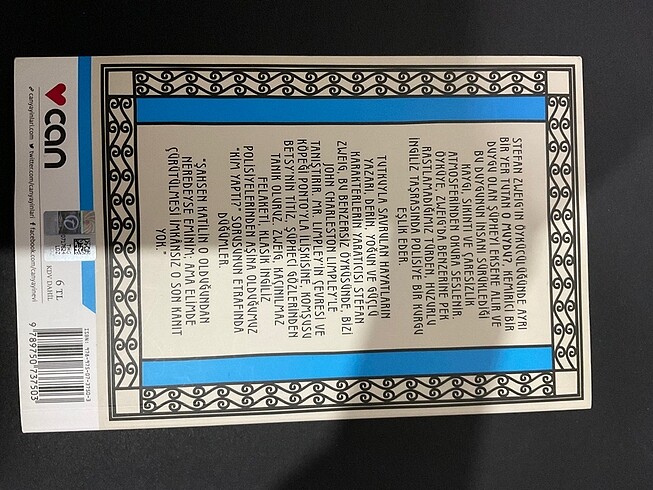 STEFAN ZWEIG'IN ÖYKÜCÜLÜĞÜNDE AYRI
BİR YER TUTAN O MUYDU?, KEMİRİCİ BİR
DUYGU OLAN ŞÜPHEYİ EKSENE ALIR VE
BU DUYGUNUN İNSANI SÜRÜKLEDİĞİ
KAYGI, SIKINTI VE ÇARESİZLİK
ATMOSFERİNDEN OKURA SESLENİR.
ÖYKÜYE, ZWEIG'DA BENZERİNE PEK
RASTLAMADIĞIMIZ TÜRDEN, HUZURLU
İNGİLİZ TAŞRASINDA POLİSİYE BİR KURGU
EŞLİK EDER.
TUTKUYLA SAVRULAN HAYATLARIN
YAZARI, DERİN, YOĞUN VE GÜÇLÜ
KARAKTERLERİN YARATICISI STEFAN
ZWEIG, BU BENZERSİZ ÖYKÜSÜNDE, BİZİ
JOHN CHARLESTON LIMPLEY'LE
TANIŞTIRIR. MR. LIMPLEY'İN ÇEVRESİ VE
KÖPEĞİ PONTO'YLA İLİŞKİSİNE, KOMŞUSU
BETSY'NİN TİTİZ, ŞÜPHECİ GÖZLERİNDEN
TANIK OLURUZ. ZWEIG, KAÇINILMAZ
FELAKETİ, KLASİK İNGİLİZ
POLİSİYELERİNDEN AŞİNA OLDUĞUMUZ
"KİM YAPTI?" SORUSUNUN ETRAFINDA
DÜĞÜMLER.
"ŞAHSEN KATİLİN O OLDUĞUNDAN
NEREDEYSE EMİNİM; AMA ELİMDE
ÇÜRÜTÜLMESİ İMKÂNSIZ O SON KANIT
YOK."
can
canyayinlari.com twitter.com/canyayinlari facebook.com/canyayinevi
6 TL
KDV DAHİL
ISBN: 978-975-07-3750-3
9 789750 737503